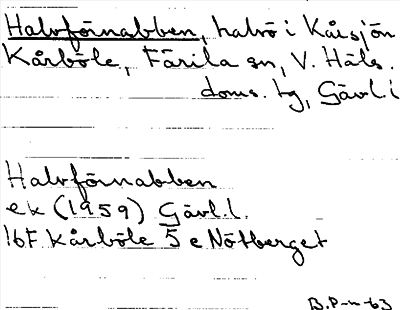 Halvförnabben, halvö i Kårsjön
Kårböle, Färila sn, V. Häls.
doms. tg, Gävl. l
Halvförnabben
ek (1959) Gävl. l.
16F Kårböle 5 e Nötberget
B.P-n-63